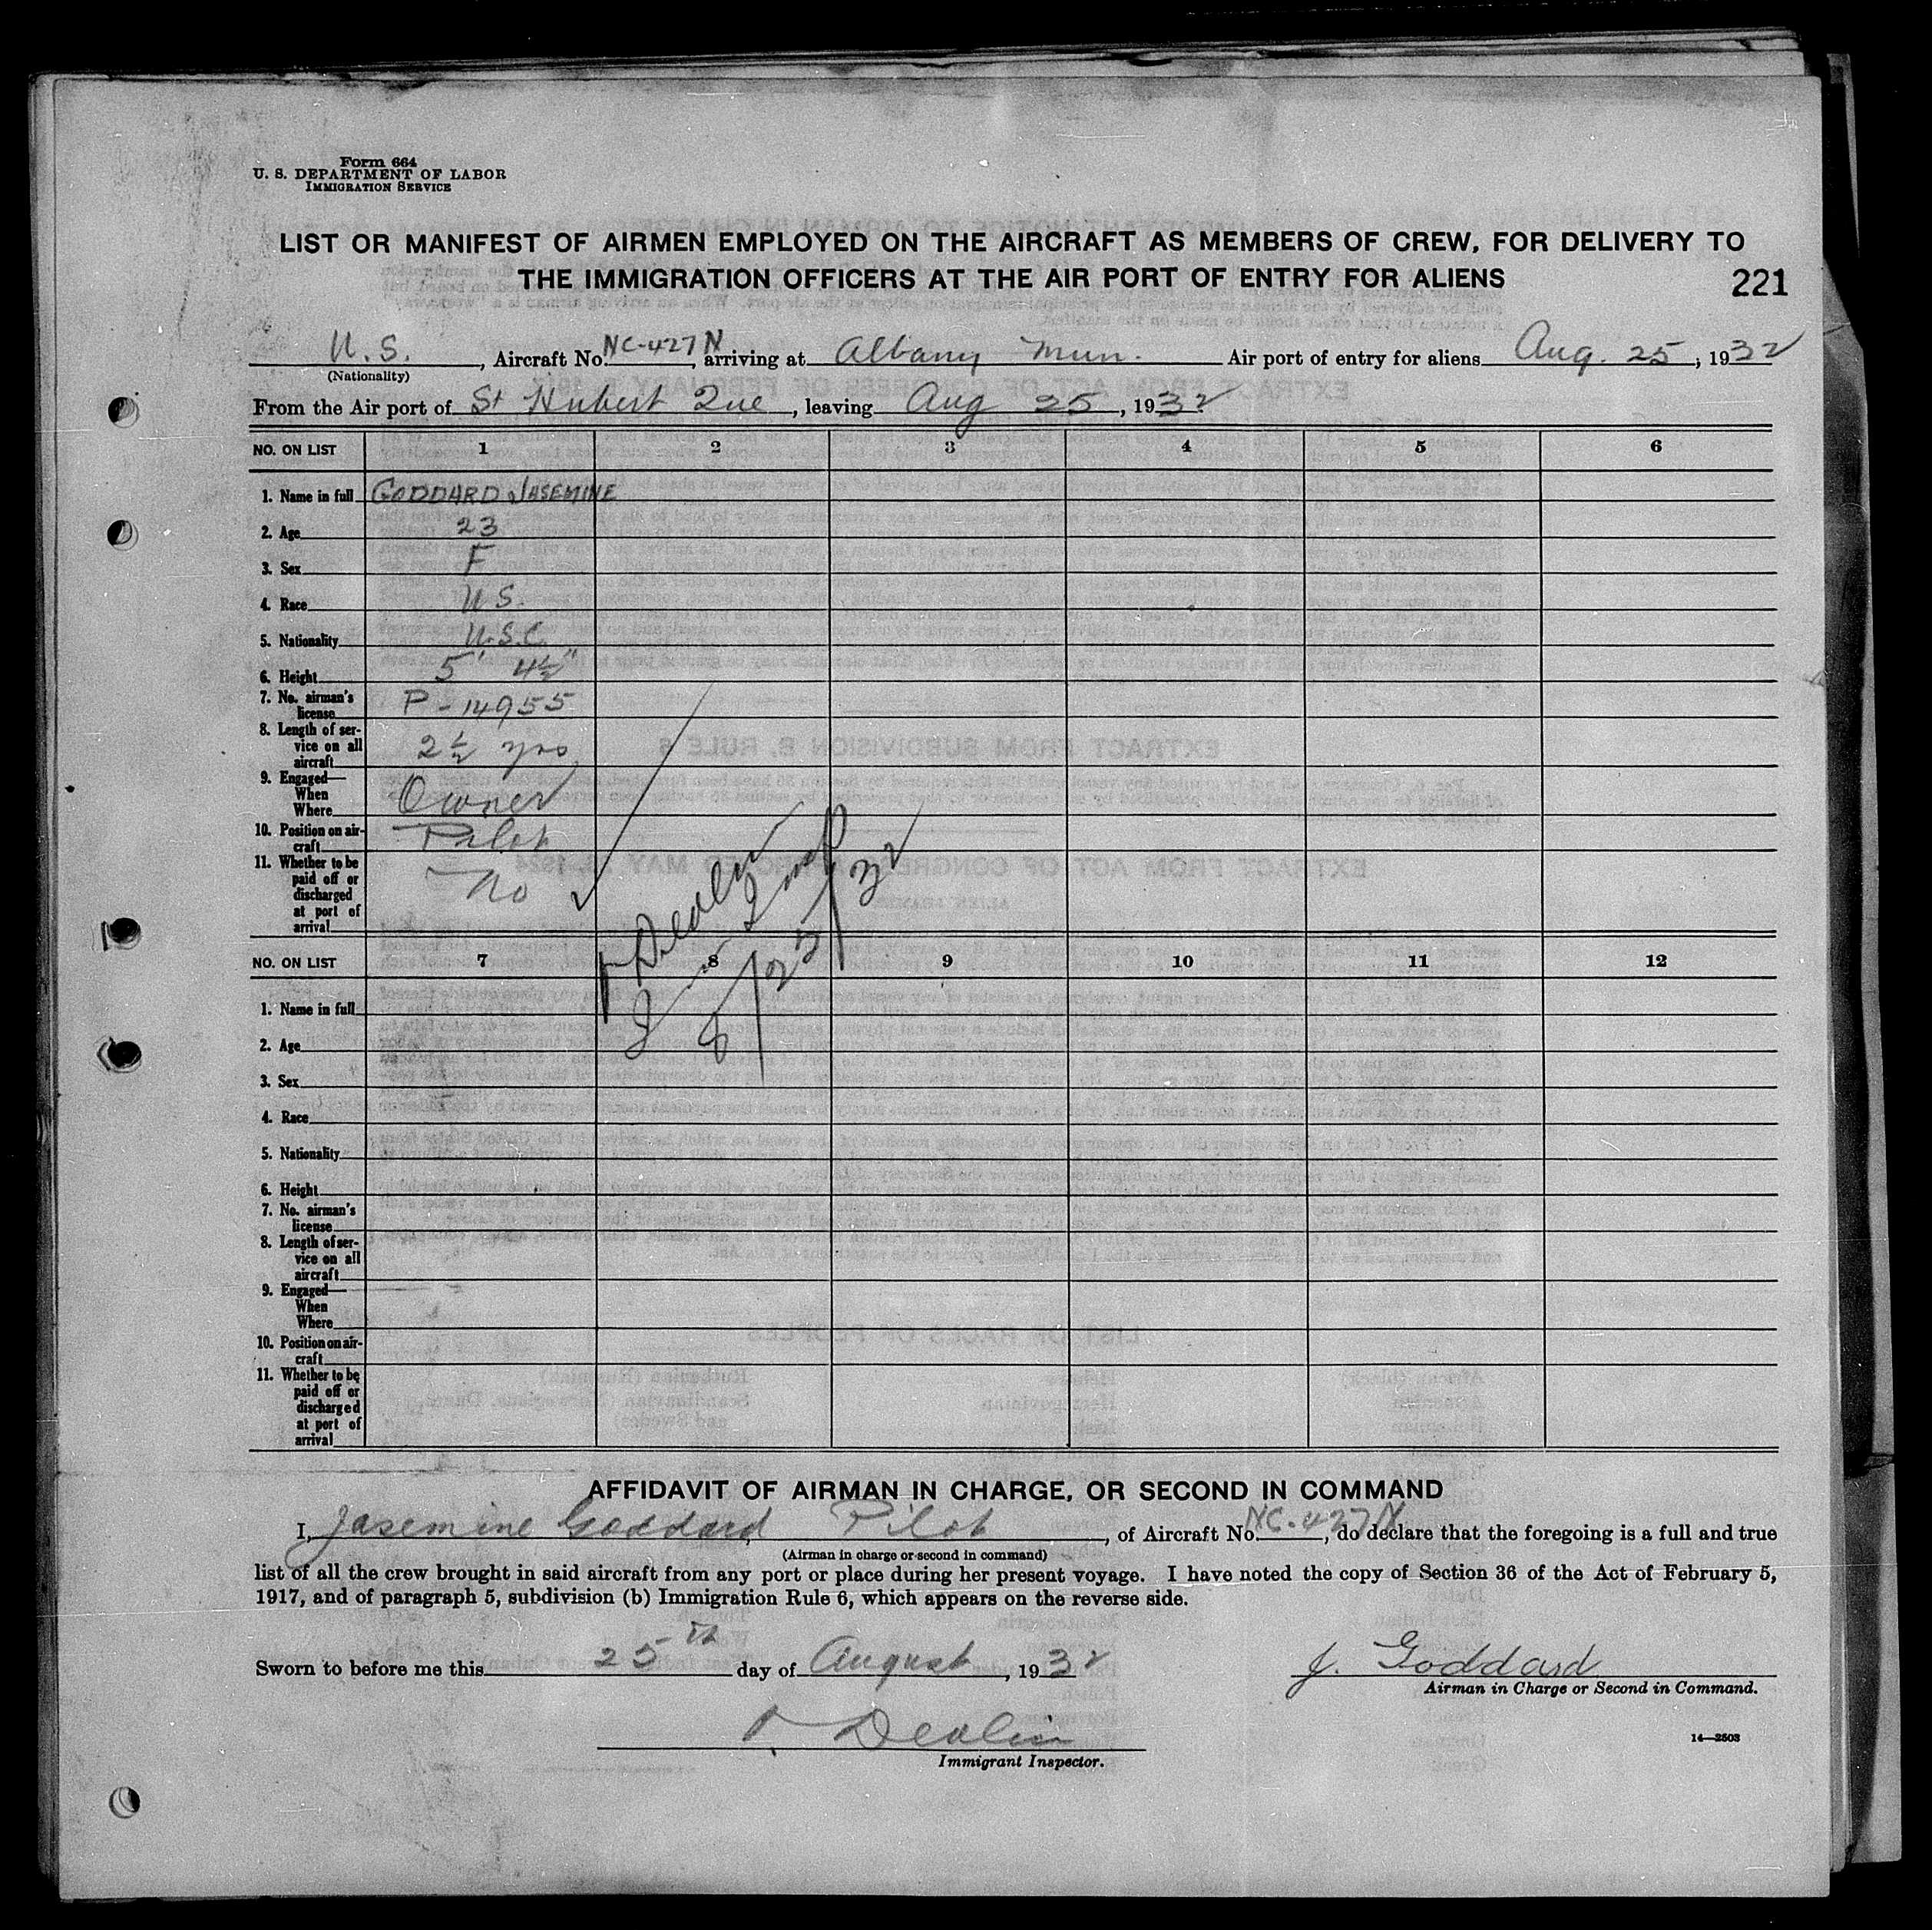 Form 664
U. S. DEPARTMENT OF LABOR
IMMIGRATION SERVICE
LIST OR MANIFEST OF AIRMEN EMPLOYED ON THE AIRCRAFT AS MEMBERS OF CREW, FOR DELIVERY TO
THE IMMIGRATION OFFICERS AT THE AIR PORT OF ENTRY FOR ALIENS
221
U.S., Aircraft No. NC-427N, arriving at Albany Mun. Air port of entry for aliens Aug. 25, 1932
(Nationality)
From the Air port of St Hubert Que, leaving Aug 25, 1932
NO. ON LIST 1 2 3 4 5 6
1. Name in full GODDARD JASEMINE
2. Age 23
3. Sex F
4. Race U.S.
5. Nationality U.S.C.
6. Height 5' 4½"
7. No. airman's license P-14955
8. Length of service on all aircraft 2½ yrs
9. Engaged— When Where Owner
10. Position on aircraft Pilot
11. Whether to be paid off or discharged at port of arrival No
Devlin
Imm Insp
8/25/32
NO. ON LIST 7 8 9 10 11 12
1. Name in full
2. Age
3. Sex
4. Race
5. Nationality
6. Height
7. No. airman's license
8. Length of service on all aircraft
9. Engaged— When Where
10. Position on aircraft
11. Whether to be paid off or discharged at port of arrival
AFFIDAVIT OF AIRMAN IN CHARGE, OR SECOND IN COMMAND
I, Jasemine Goddard, Pilot, of Aircraft No. NC-427N, do declare that the foregoing is a full and true
(Airman in charge or second in command)
list of all the crew brought in said aircraft from any port or place during her present voyage. I have noted the copy of Section 36 of the Act of February 5,
1917, and of paragraph 5, subdivision (b) Immigration Rule 6, which appears on the reverse side.
Sworn to before me this 25th day of August, 1932
J. Goddard
Airman in Charge or Second in Command.
Devlin
Immigrant Inspector.
14—2503